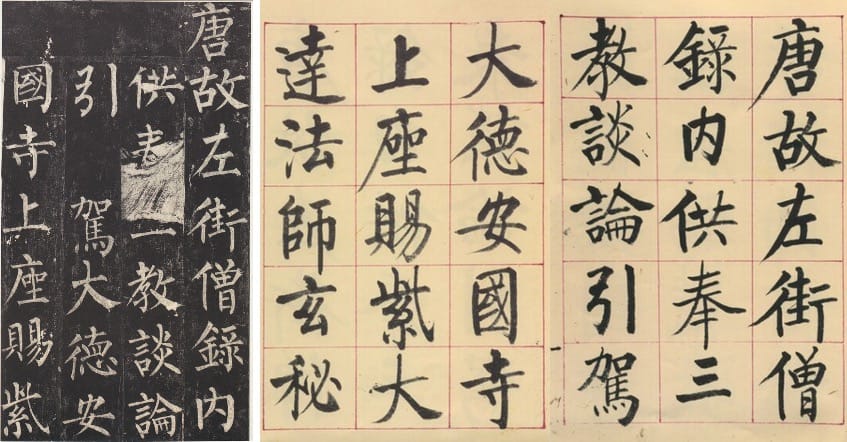 唐故左街僧録内
供奉教談論
引駕大德安
國寺上座賜紫
唐故左街僧
録内供奉三
教談論引駕
大德安國寺
上座賜紫大
達法師玄秘